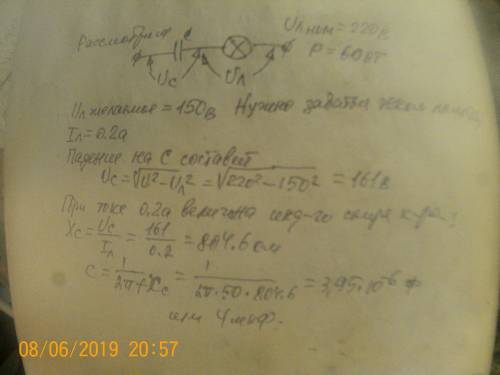 Рассмотрим
C
Uл ном = 220в
P = 60вт
Uc
Uл
Uл желаемое = 150в Нужно задаться током лампы
Iл = 0.2а
Падение на C составит
Uc = √U² - Uл² = √220² - 150² = 161в
При токе 0,2а величина
Xc = Uc / Iл = 161 / 0.2 = 804.6 ом
C = 1 / 2πfXc = 1 / 2π · 50 · 804.6 = 3,95·10⁻⁶ ф
или 4 мкф.
08/06/2019 20:57